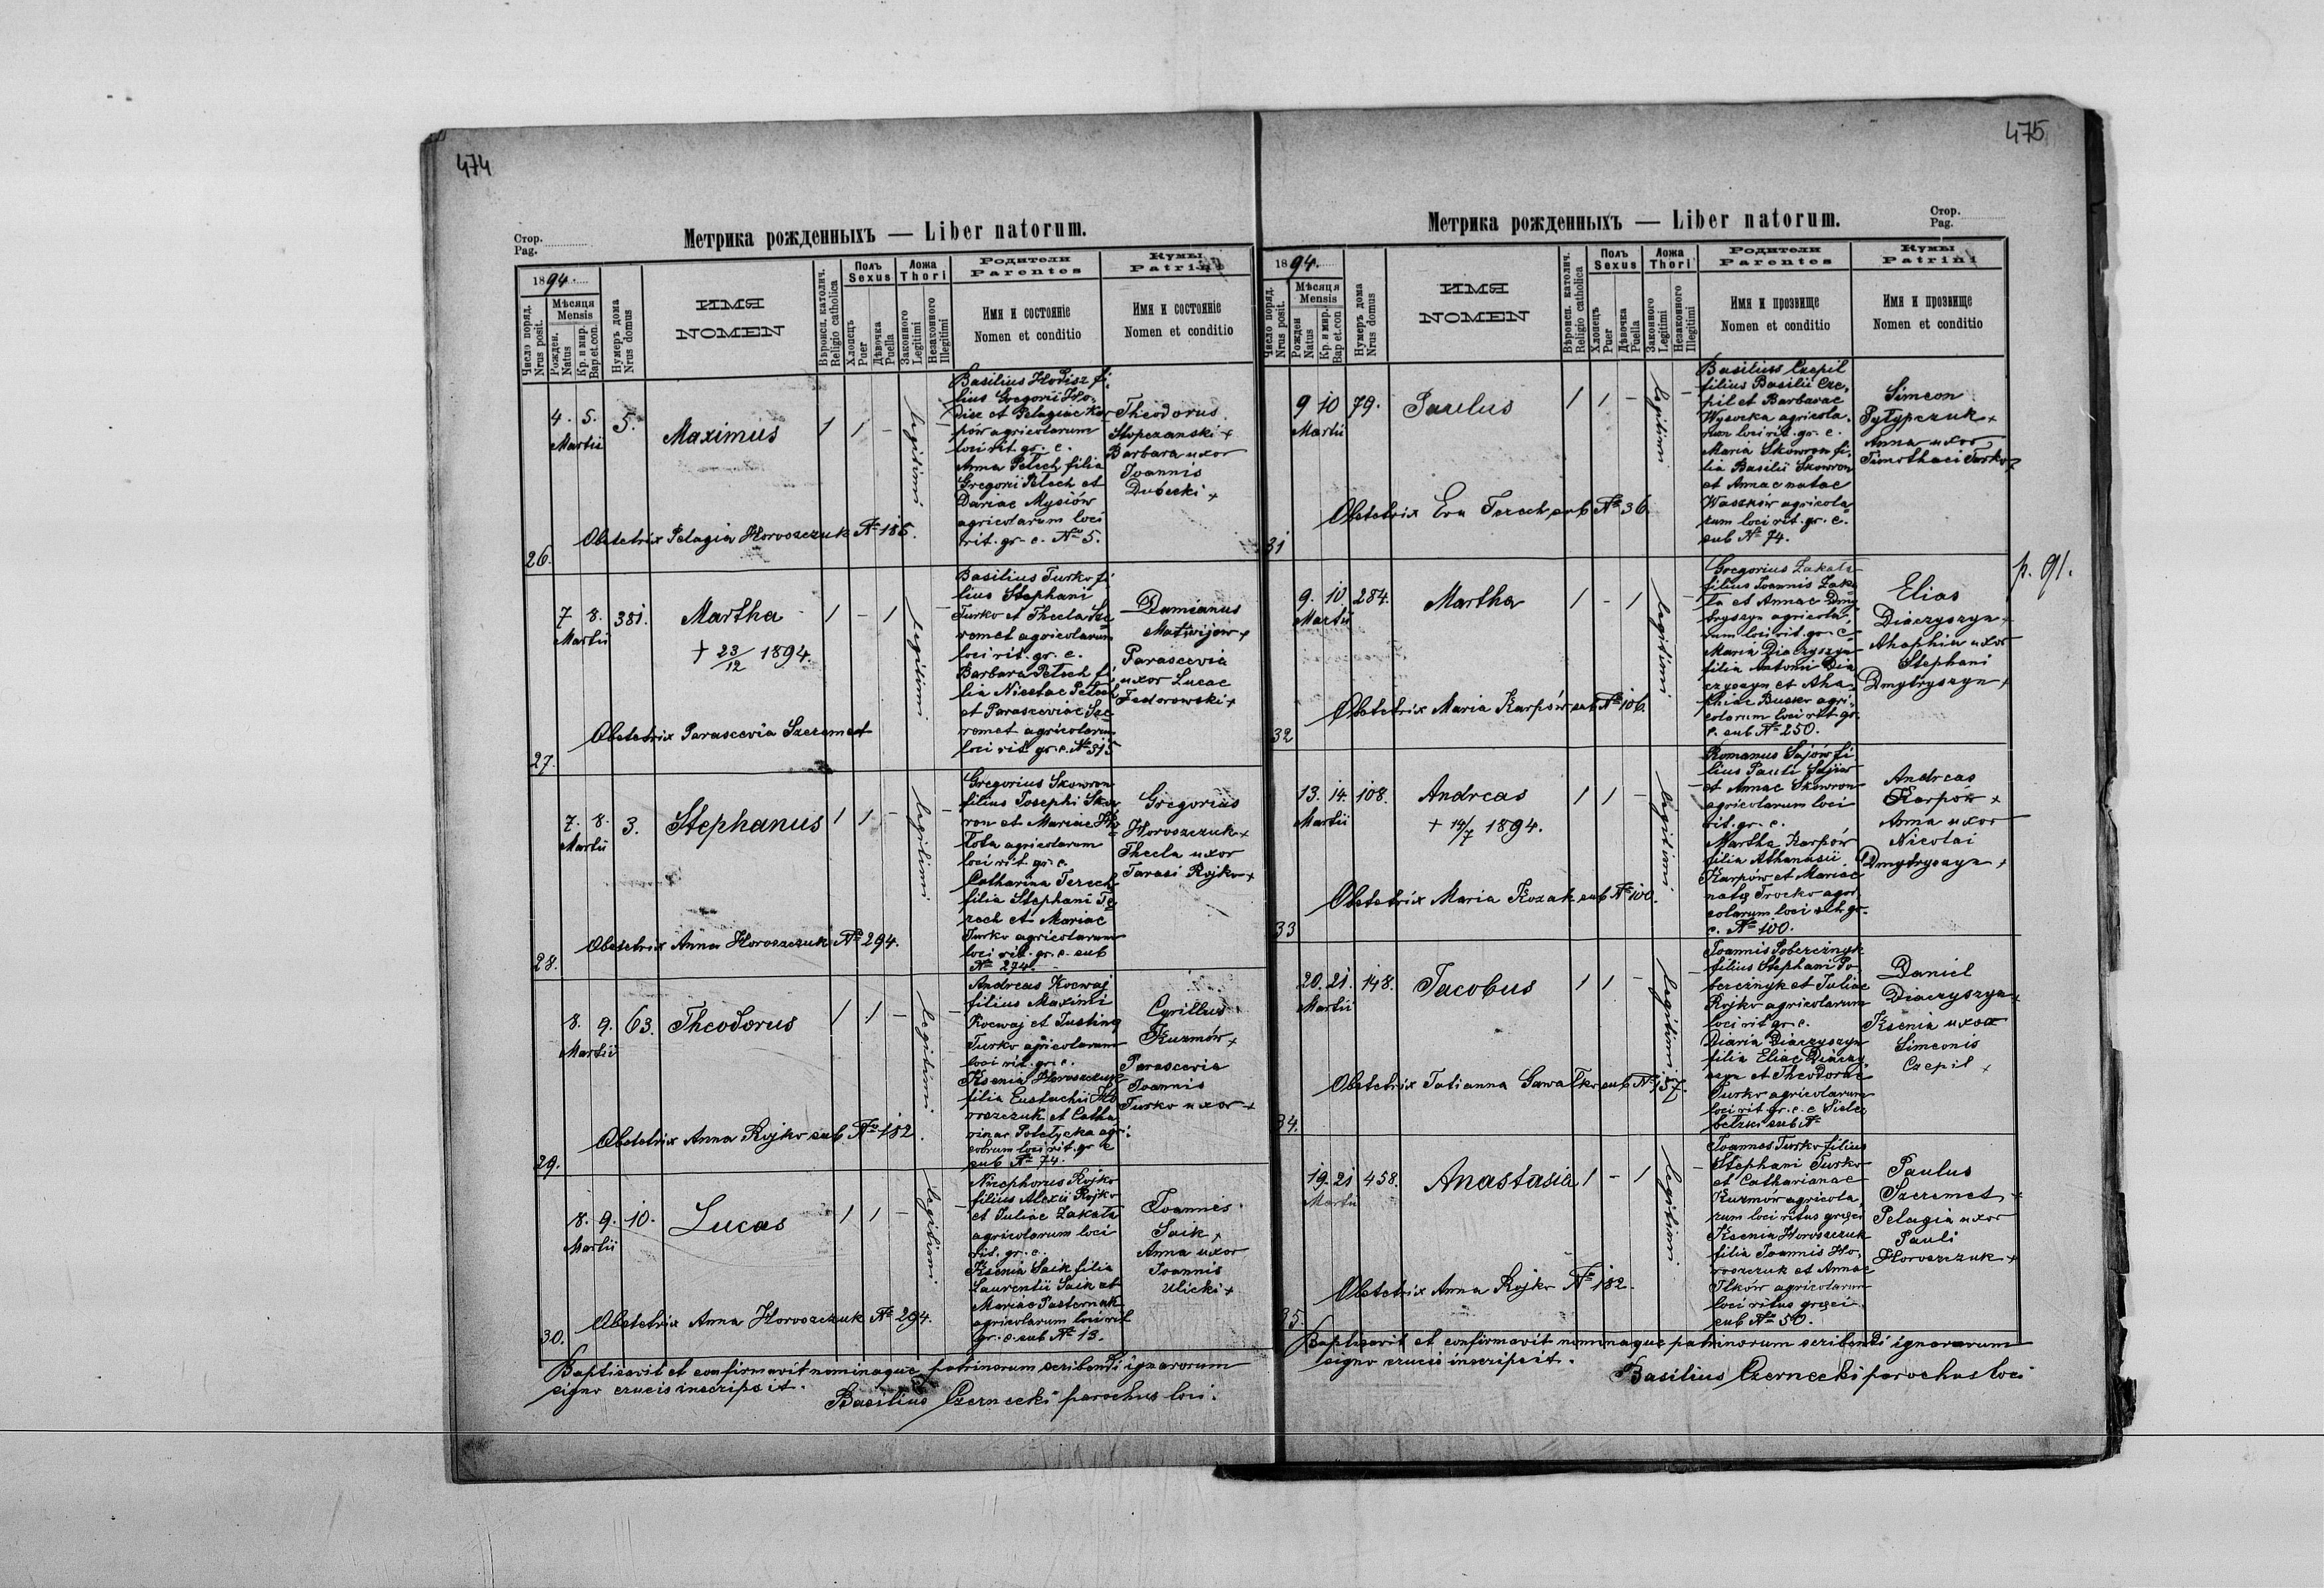 474
Стор.
Pag.
Метрика рожденныхъ — Liber natorum.
1894.
Число поряд.
Nrus posit.
Мѣсяця
Mensis
Рожден.
Natus
Кр. и мир.
Bap.et.con.
Нумеръ дома
Nrus domus
ИМЯ
NOMEN
Вѣроисп. католич.
Religio catholica
Полъ
Sexus
Хлопецъ
Puer
Дѣвочка
Puella
Ложа
Thori
Законного
Legitimi
Незаконного
Illegitimi
Родители
Parentes
Имя и состоянiе
Nomen et conditio
Кумы
Patrini
Имя и состоянiе
Nomen et conditio
26.
4. 5.
Martii
5.
Maximus
1 1 -
legitimi
Basilius Hodisz fi-
lius Gregorii Ho-
disz et Pelagiae Kar
pów agricolarum
loci rit. gr. c.
Anna Petech filia
Gregorii Petech et
Dariae Mysiów
agricolarum loci
rit. gr. c. No 5.
Theodorus
Stopczanski +
Barbara uxor
Joannis
Dubecki +
Obstetrix Pelagia Horoszczuk No 186.
27.
7 8.
Martii
381.
Martha
+ 23/12 1894.
1 - 1
legitimi
Basilius Turko fi
lius Stephani
Turko et Thecla Sze
remet agricolarum
loci rit. gr. c.
Barbara Petech fi
lia Nicetae Petech
et Parasceviae Sze
remet agricolarum
loci rit gr. c. No 315
Damianus
Matwijow +
Parascevia
uxor Lucae
Fedorowski +
Obstetrix Parascevia Szeremet
28.
7. 8.
Martii
3.
Stephanus
1 1 -
legitimi
Gregorius Skowron
filius Josephi Skow
ron et Mariae
agricolarum
loci rit. gr. c.
Catharina Terech
filia Stephani Te
rech et Mariae
Turko agricolarum
loci rit. gr. c. sub
No 294.
Gregorius
Horoszczuk +
Thecla uxor
Tarasi Rojko +
Obstetrix Anna Horoszczuk No 294.
29.
8. 9.
Martii
63.
Theodorus
1 1 -
legitimi
Andreas Kocwaj
filius Maximi
Kocwaj et Justina
Turko agricolarum
loci rit. gr. c.
Ksenia Horoszczuk
filia Eustachii Ho
roszczuk et Catha
rinae Potetycka agri-
colrum loci rit. gr c
sub No 74.
Cyrillus
Kuzmów +
Parascevia
Joannis
Turko uxor +
Obstetrix Anna Rojko sub No 182.
30.
8. 9.
Martii
10.
Lucas
1 1 -
legitimi
Nicephorus Rojko
filius Alexii Rojko
et Juliae Zakała
agricolarum loci
rit. gr. c.
Ksenia Saik filia
Laurentii Saik et
Mariae Pasternak
agricolarum loci rit
gr. c. sub No 13.
Joannes
Saik +
Anna uxor
Joannis
Ulicki +
Obstetrix Anna Horoszczuk No 294.
Baptisavit et confirmavit nominaque patrinorum scribendi ignarorum
signo crucis inscripsit.
Basilius Czernecki parochus loci.
475
Стор.
Pag.
Метрика рожденныхъ — Liber natorum.
1894.
Число поряд.
Nrus posit.
Мѣсяця
Mensis
Рожден
Natus
Кр. и мир.
Bap et.con
Нумеръ дома
Nrus domus
ИМЯ
NOMEN
Вѣроисп. католич.
Religio catholica
Полъ
Sexus
Хлопецъ
Puer
Дѣвочка
Puella
Ложа
Thori
Законного
Legitimi
Незаконного
Illegitimi
Родители
Parentes
Имя и прозвище
Nomen et conditio
Кумы
Patrini
Имя и прозвище
Nomen et conditio
31
9 10
Martii
79.
Paulus
1 1 -
legitimi
Basilius Czepil
filius Basilii Cze-
pil et Barbarae
Wysocka agricola-
rum loci rit. gr. c.
Maria Skowron fi-
lia Basilii Skowron
et Annae natae
Waszków agricola-
rum loci rit. gr. c.
sub No 74.
Simeon
Pytypczuk +
Anna uxor
Timothaei Turko +
Obstetrix Eva Terech sub No 36.
32
9. 10.
Martii
284.
Martha
1 - 1
legitimi
Gregorius Zakała
filius Joannis Zaka
ła et Annae Dmy
tryszyn agricola-
rum loci rit. gr. c.
Maria Diaczyszyn
filia Antoni Dia
czyszyn et Aha-
phiae Busko agri-
colarum loci rit gr.
c. sub No 250.
Elias
Diaczyszyn +
Ahaphia uxor
Stephani
Dmytryszyn +
p. 91.
Obstetrix Maria Karpów sub No 106.
33
13. 14.
Martii
108.
Andreas
+ 14/7 1894.
1 1 -
legitimi
Romanus Sajów fi
lius Pauli Sajów
et Annae Skowron
agricolarum loci
rit. gr. c.
Martha Karpów
filia Athanasii
Karpów et Mariae
natę Trocko agri
colarum loci rit. gr.
c. No 100.
Andreas
Karpów +
Anna uxor
Nicolai
Dmytryszyn +
Obstetrix Maria Kozak sub No 100.
34.
20. 21.
Martii
148.
Jacobus
1 1 -
legitimi
Joannis Pobereżnyk
filius Stephani Po
bereżnyk et Juliae
Rojko agricolarum
loci rit gr. c.
Daria Diaczyszyn
filia Eliae Diaczy
szyn et Theodorae
Turko agricolarum
loci rit. gr. c. c Siele
belzki sub No
Daniel
Diaczyszyn +
Ksenia uxor
Simeonis
Czepil +
Obstetrix Tatianna Gawałko sub No 157.
35.
19. 21
Martii
458.
Anastasia
1 - 1
legitimi
Joannes Turko filius
Stephani Turko
et Catharianae
Kuzmów agricola
rum loci ritus gręci
Ksenia Horoszczuk
filia Joannis Ho-
roszczuk et Annae
Ilków agricolarum
loci ritus gręci
sub No 50.
Paulus
Szeremet +
Pelagia uxor
Pauli
Horoszczuk +
Obstetrix Anna Rojko No 182.
Baptisavit et confirmavit nominaque patrinorum scribendi ignarorum
signo crucis inscripsit.
Basilius Czernecki parochus loci